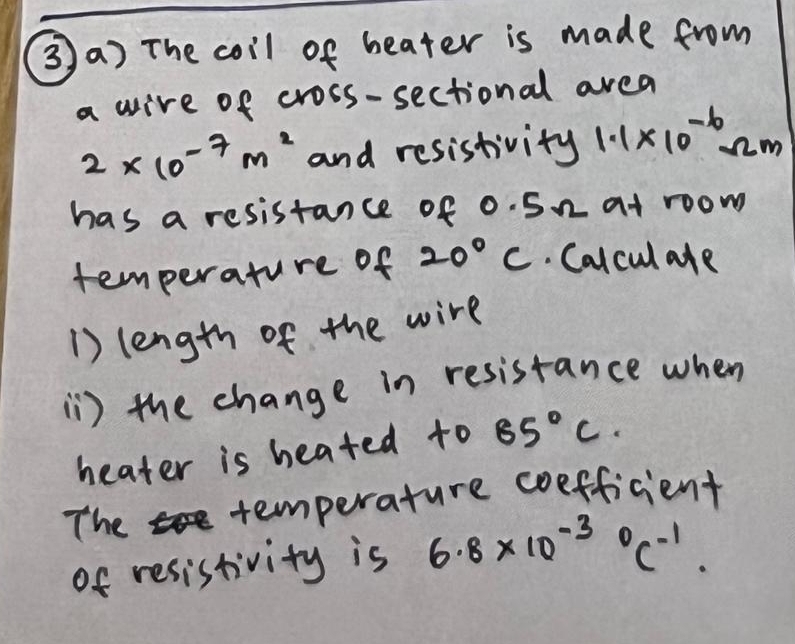 3) a) The coil of heater is made from
a wire of cross-sectional area
2 × 10⁻⁷ m² and resistivity 1.1 × 10⁻⁶ Ωm
has a resistance of 0.5Ω at room
temperature of 20° C. Calculate
i) length of the wire
ii) the change in resistance when
heater is heated to 85° C.
The temperature coefficient
of resistivity is 6.8 × 10⁻³ °C⁻¹.